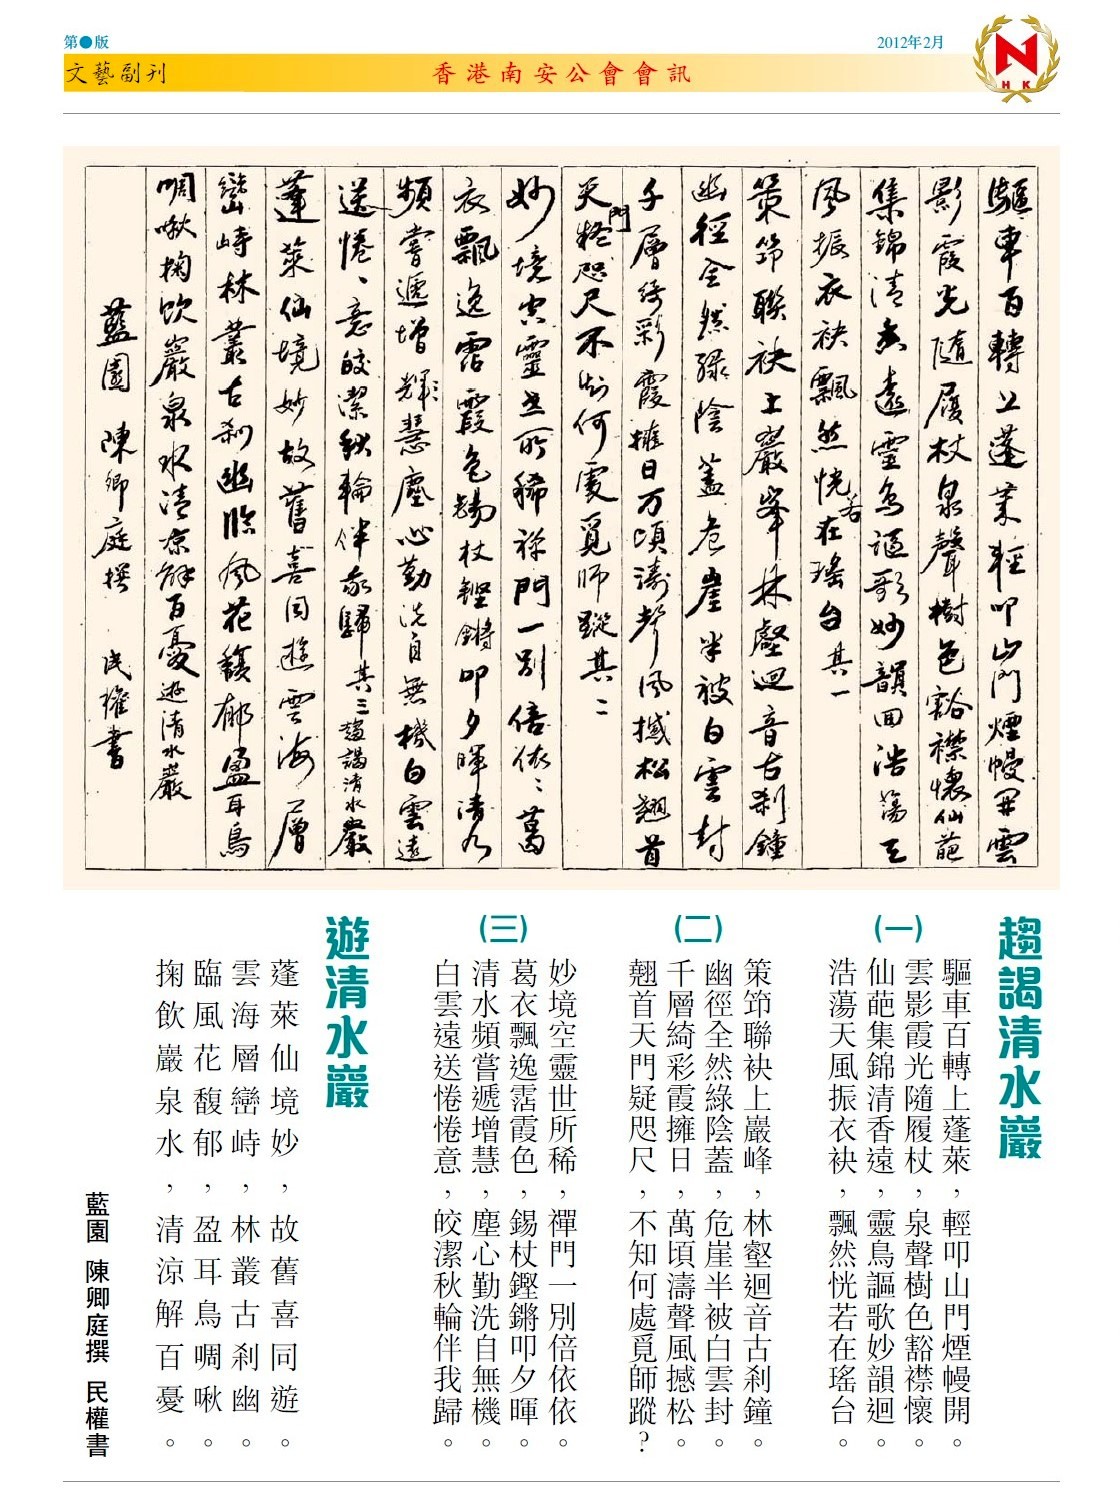 第●版
2012年2月
文藝副刊
香港南安公會會訊
N
HK
驅車百轉上蓬萊輕叩山門煙幔開雲
影霞光隨履杖泉聲樹色豁襟懷仙葩
集錦清香遠靈鳥謳歌妙韻回浩蕩天
風振衣袂飄然恍若在瑤台其一
策笻聯袂上巖峯林壑迴音古刹鐘
幽徑全然綠陰蓋危崖半被白雲封
千層綺彩霞擁日万頃濤聲風撼松翹首
天門疑咫尺不知何處覓師蹤其二
妙境空靈世所稀禪門一別倍依、葛
衣飄逸霑霞色錫杖鏗鏘叩夕暉清水
頻嘗遞增輝慧塵心勤洗自無機白雲遠
送惓、意皎潔秋輪伴我歸其三趨謁清水巖
蓬萊仙境妙故舊喜同遊雲海層
巒峙林叢古刹幽臨風花馥郁盈耳鳥
啁啾掬飲巖泉水清涼解百憂遊清水巖
藍園 陳卿庭撰 民權書
趨謁清水巖
(一)
驅車百轉上蓬萊，輕叩山門煙幔開。
雲影霞光隨履杖，泉聲樹色豁襟懷。
仙葩集錦清香遠，靈鳥謳歌妙韻迴。
浩蕩天風振衣袂，飄然恍若在瑤台。
(二)
策笻聯袂上巖峰，林壑迴音古刹鐘。
幽徑全然綠陰蓋，危崖半被白雲封。
千層綺彩霞擁日，萬頃濤聲風撼松。
翹首天門疑咫尺，不知何處覓師蹤?
(三)
妙境空靈世所稀，禪門一別倍依依。
葛衣飄逸霑霞色，錫杖鏗鏘叩夕暉。
清水頻嘗遞增慧，塵心勤洗自無機。
白雲遠送惓惓意，皎潔秋輪伴我歸。
遊清水巖
蓬萊仙境妙，故舊喜同遊。
雲海層巒峙，林叢古刹幽。
臨風花馥郁，盈耳鳥啁啾。
掬飲巖泉水，清涼解百憂。
藍園 陳卿庭撰 民權書